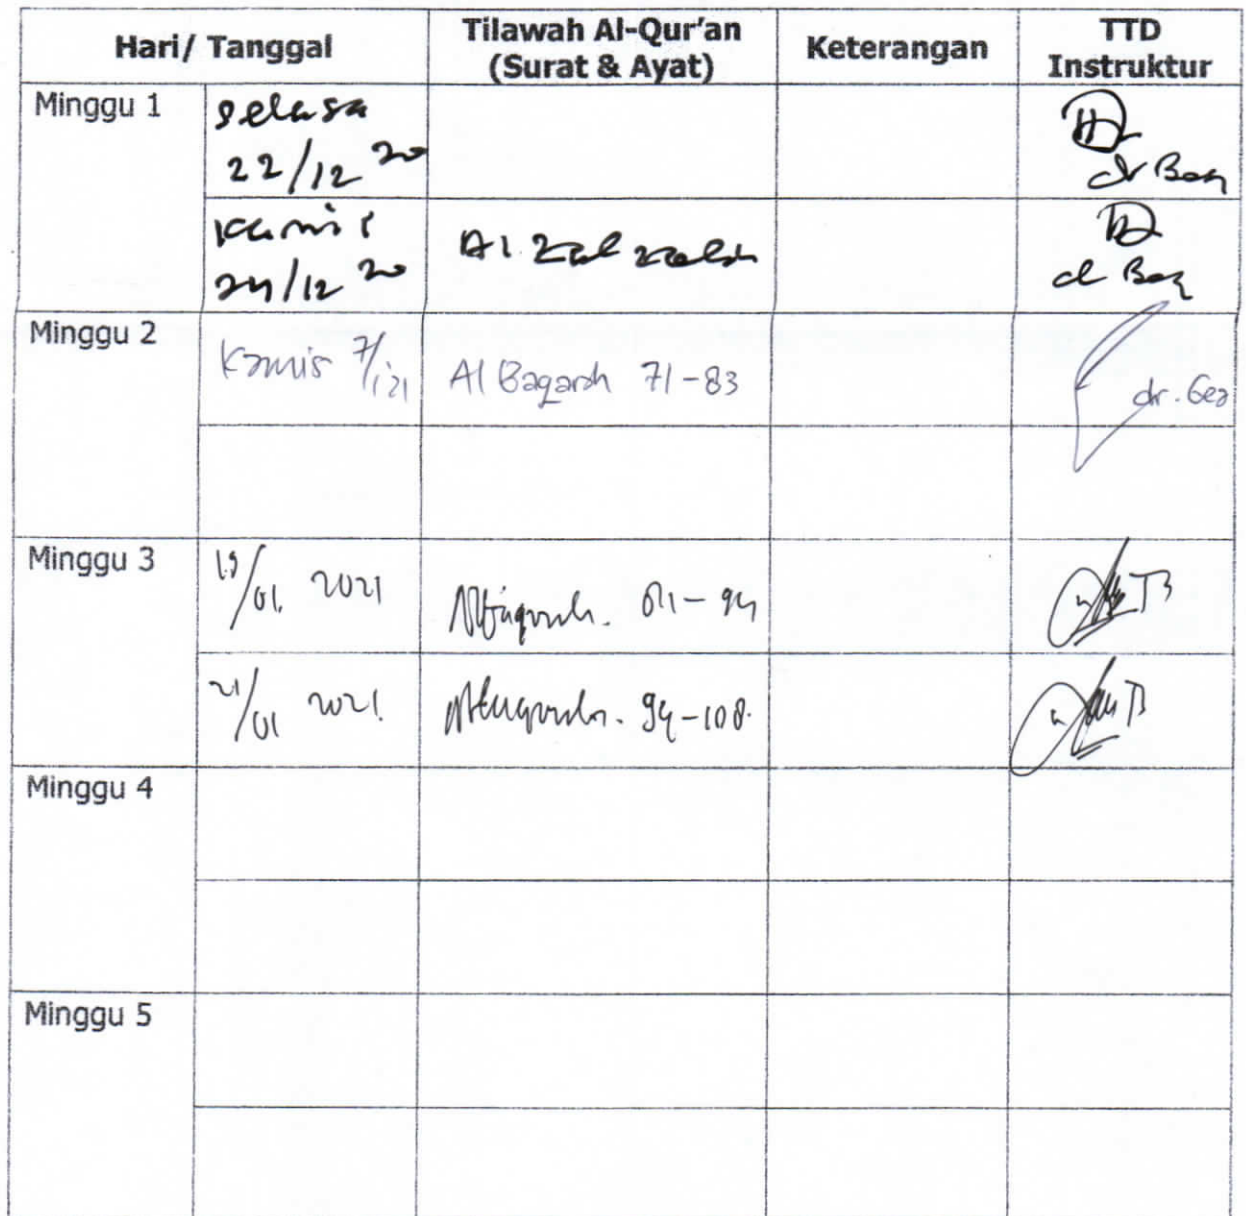 Hari/ Tanggal
Tilawah Al-Qur’an
(Surat & Ayat)
Keterangan
TTD
Instruktur
Minggu 1
selasa
22/12 20
dr
Kamis
24/12 20
Al Zalzalah
Minggu 2
Kamis 7/1 21
Al Baqarah 71-83
dr. Gea
Minggu 3
19/01 2021
Albaqarah. 84-94
21/01 2021
Albaqarah. 94-108.
Minggu 4
Minggu 5